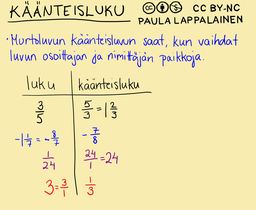 KÄÄNTEISLUKU CC BY-NC
PAULA LAPPALAINEN
• Murtoluvun käänteisluvun saat, kun vaihdat
luvun osoittajan ja nimittäjän paikkoja.
luku | käänteisluku
3/5 | 5/3 = 1 2/3
-1 1/7 = -8/7 | -7/8
1/24 | 24/1 = 24
3 = 3/1 | 1/3